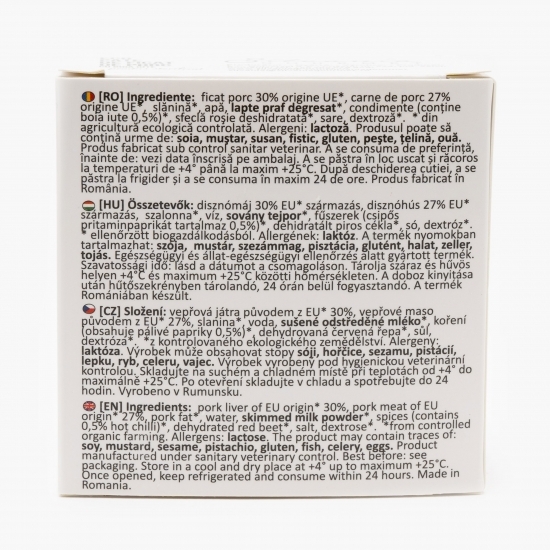 [RO] Ingrediente: ficat porc 30% origine UE*, carne de porc 27%
origine UE*, slănină*, apă, lapte praf degresat*, condimente (conține
boia iute 0,5%)*, sfeclă roșie deshidratată*, sare, dextroză*. * din
agricultură ecologică controlată. Alergeni: lactoză. Produsul poate să
conțină urme de: soia, muștar, susan, fistic, gluten, pește, țelină, ouă.
Produs fabricat sub control sanitar veterinar. A se consuma de preferință,
înainte de: vezi data înscrisă pe ambalaj. A se păstra în loc uscat și răcoros
la temperaturi de +4° până la maxim +25°C. După deschiderea cutiei, a se
păstra la frigider și a se consuma în maxim 24 de ore. Produs fabricat în
România.
[HU] Összetevők: disznómáj 30% EU* származás, disznóhús 27% EU*
származás, szalonna*, víz, sovány tejpor*, fűszerek (csipős
pritaminpaprikát tartalmaz 0,5%)*, dehidratált piros cékla*, só, dextróz*.
* ellenőrzött biogazdálkodásból. Allergének: laktóz. A termék nyomokban
tartalmazhat: szója, mustár, szezámmag, pisztácia, glutént, halat, zeller,
tojás. Egészségügyi és állat-egészségügyi ellenőrzés alatt gyártott termék.
Szavatossági idő: lásd a dátumot a csomagoláson. Tárolja száraz és hűvös
helyen +4°C és maximum +25°C közötti hőmérsékleten. A doboz kinyitása
után hűtőszekrényben tárolandó, 24 órán belül fogyasztandó. A termék
Romániában készült.
[CZ] Složení: vepřová játra původem z EU* 30%, vepřové maso
původem z EU* 27%, slanina*, voda, sušené odstředěné mléko*, koření
(obsahuje pálivé papriky 0,5%)*, dehydratovaná červená řepa*, sůl,
dextróza*. *z kontrolovaného ekologického zemědělství. Alergeny:
laktóza. Výrobek může obsahovat stopy sóji, hořčice, sezamu, pistácií,
lepku, ryb, celeru, vajec. Výrobek vyrobený pod hygienickou veterinární
kontrolou. Skladujte na suchém a chladném místě při teplotách od +4° do
maximálně +25°C. Po otevření skladujte v chladu a spotřebujte do 24
hodin. Vyrobeno v Rumunsku.
[EN] Ingredients: pork liver of EU origin* 30%, pork meat of EU
origin* 27%, pork fat*, water, skimmed milk powder*, spices (contains
0,5% hot chilli)*, dehydrated red beet*, salt, dextrose*. *from controlled
organic farming. Allergens: lactose. The product may contain traces of:
soy, mustard, sesame, pistachio, gluten, fish, celery, eggs. Product
manufactured under sanitary veterinary control. Best before: see
packaging. Store in a cool and dry place at +4° up to maximum +25°C.
Once opened, keep refrigerated and consume within 24 hours. Made in
Romania.